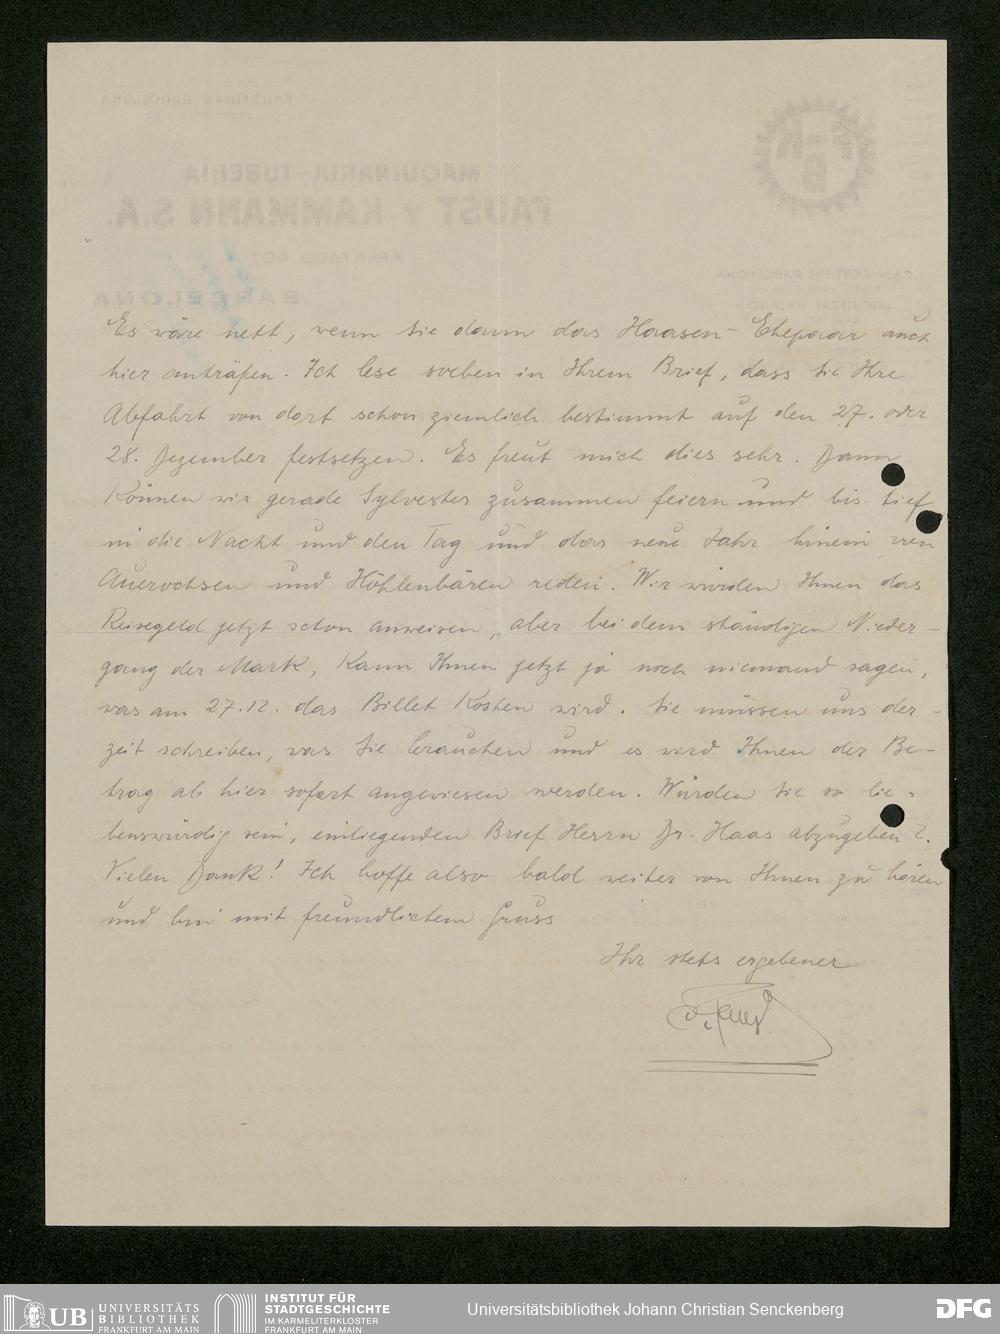 FAUSTINAM-BARCELONA
MAQUINARIA-TUBERÍA
FAUST Y KAMMANN S.A.
APARTADO 407
CASA CENTRAL BARCELONA
BARCELONA
Es wäre nett, wenn Sie dann das Haasen-Ehepaar auch
hier anträfen. Ich lese soeben in Ihrem Brief, dass Sie Ihre
Abfahrt von dort schon ziemlich bestimmt auf den 27. oder
28. Dezember festsetzen. Es freut mich dies sehr. Dann
Können wir gerade Sylvester zusammen feiern und bis tief
in die Nacht und den Tag und das neue Jahr hinein von
Auerochsen und Höhlenbären reden. Wir würden Ihnen das
Reisegeld jetzt schon anweisen, aber bei dem ständigen Nieder-
gang der Mark, Kann Ihnen jetzt ja noch niemand sagen,
was am 27.12. das Billet Kosten wird. Sie müssen uns der-
zeit schreiben, was Sie brauchen und es wird Ihnen der Be-
trag ab hier sofort angewiesen werden. Würden Sie so lie-
benswürdig sein, einliegenden Brief Herrn Dr. Haas abzugeben?
Vielen Dank! Ich hoffe also bald weiter von Ihnen zu hören
und bin mit freundlichem Gruss
Ihr stets ergebener
Faust
UB UNIVERSITÄTS
BIBLIOTHEK
FRANKFURT AM MAIN
INSTITUT FÜR
STADTGESCHICHTE
IM KARMELITERKLOSTER
FRANKFURT AM MAIN
Universitätsbibliothek Johann Christian Senckenberg
DFG